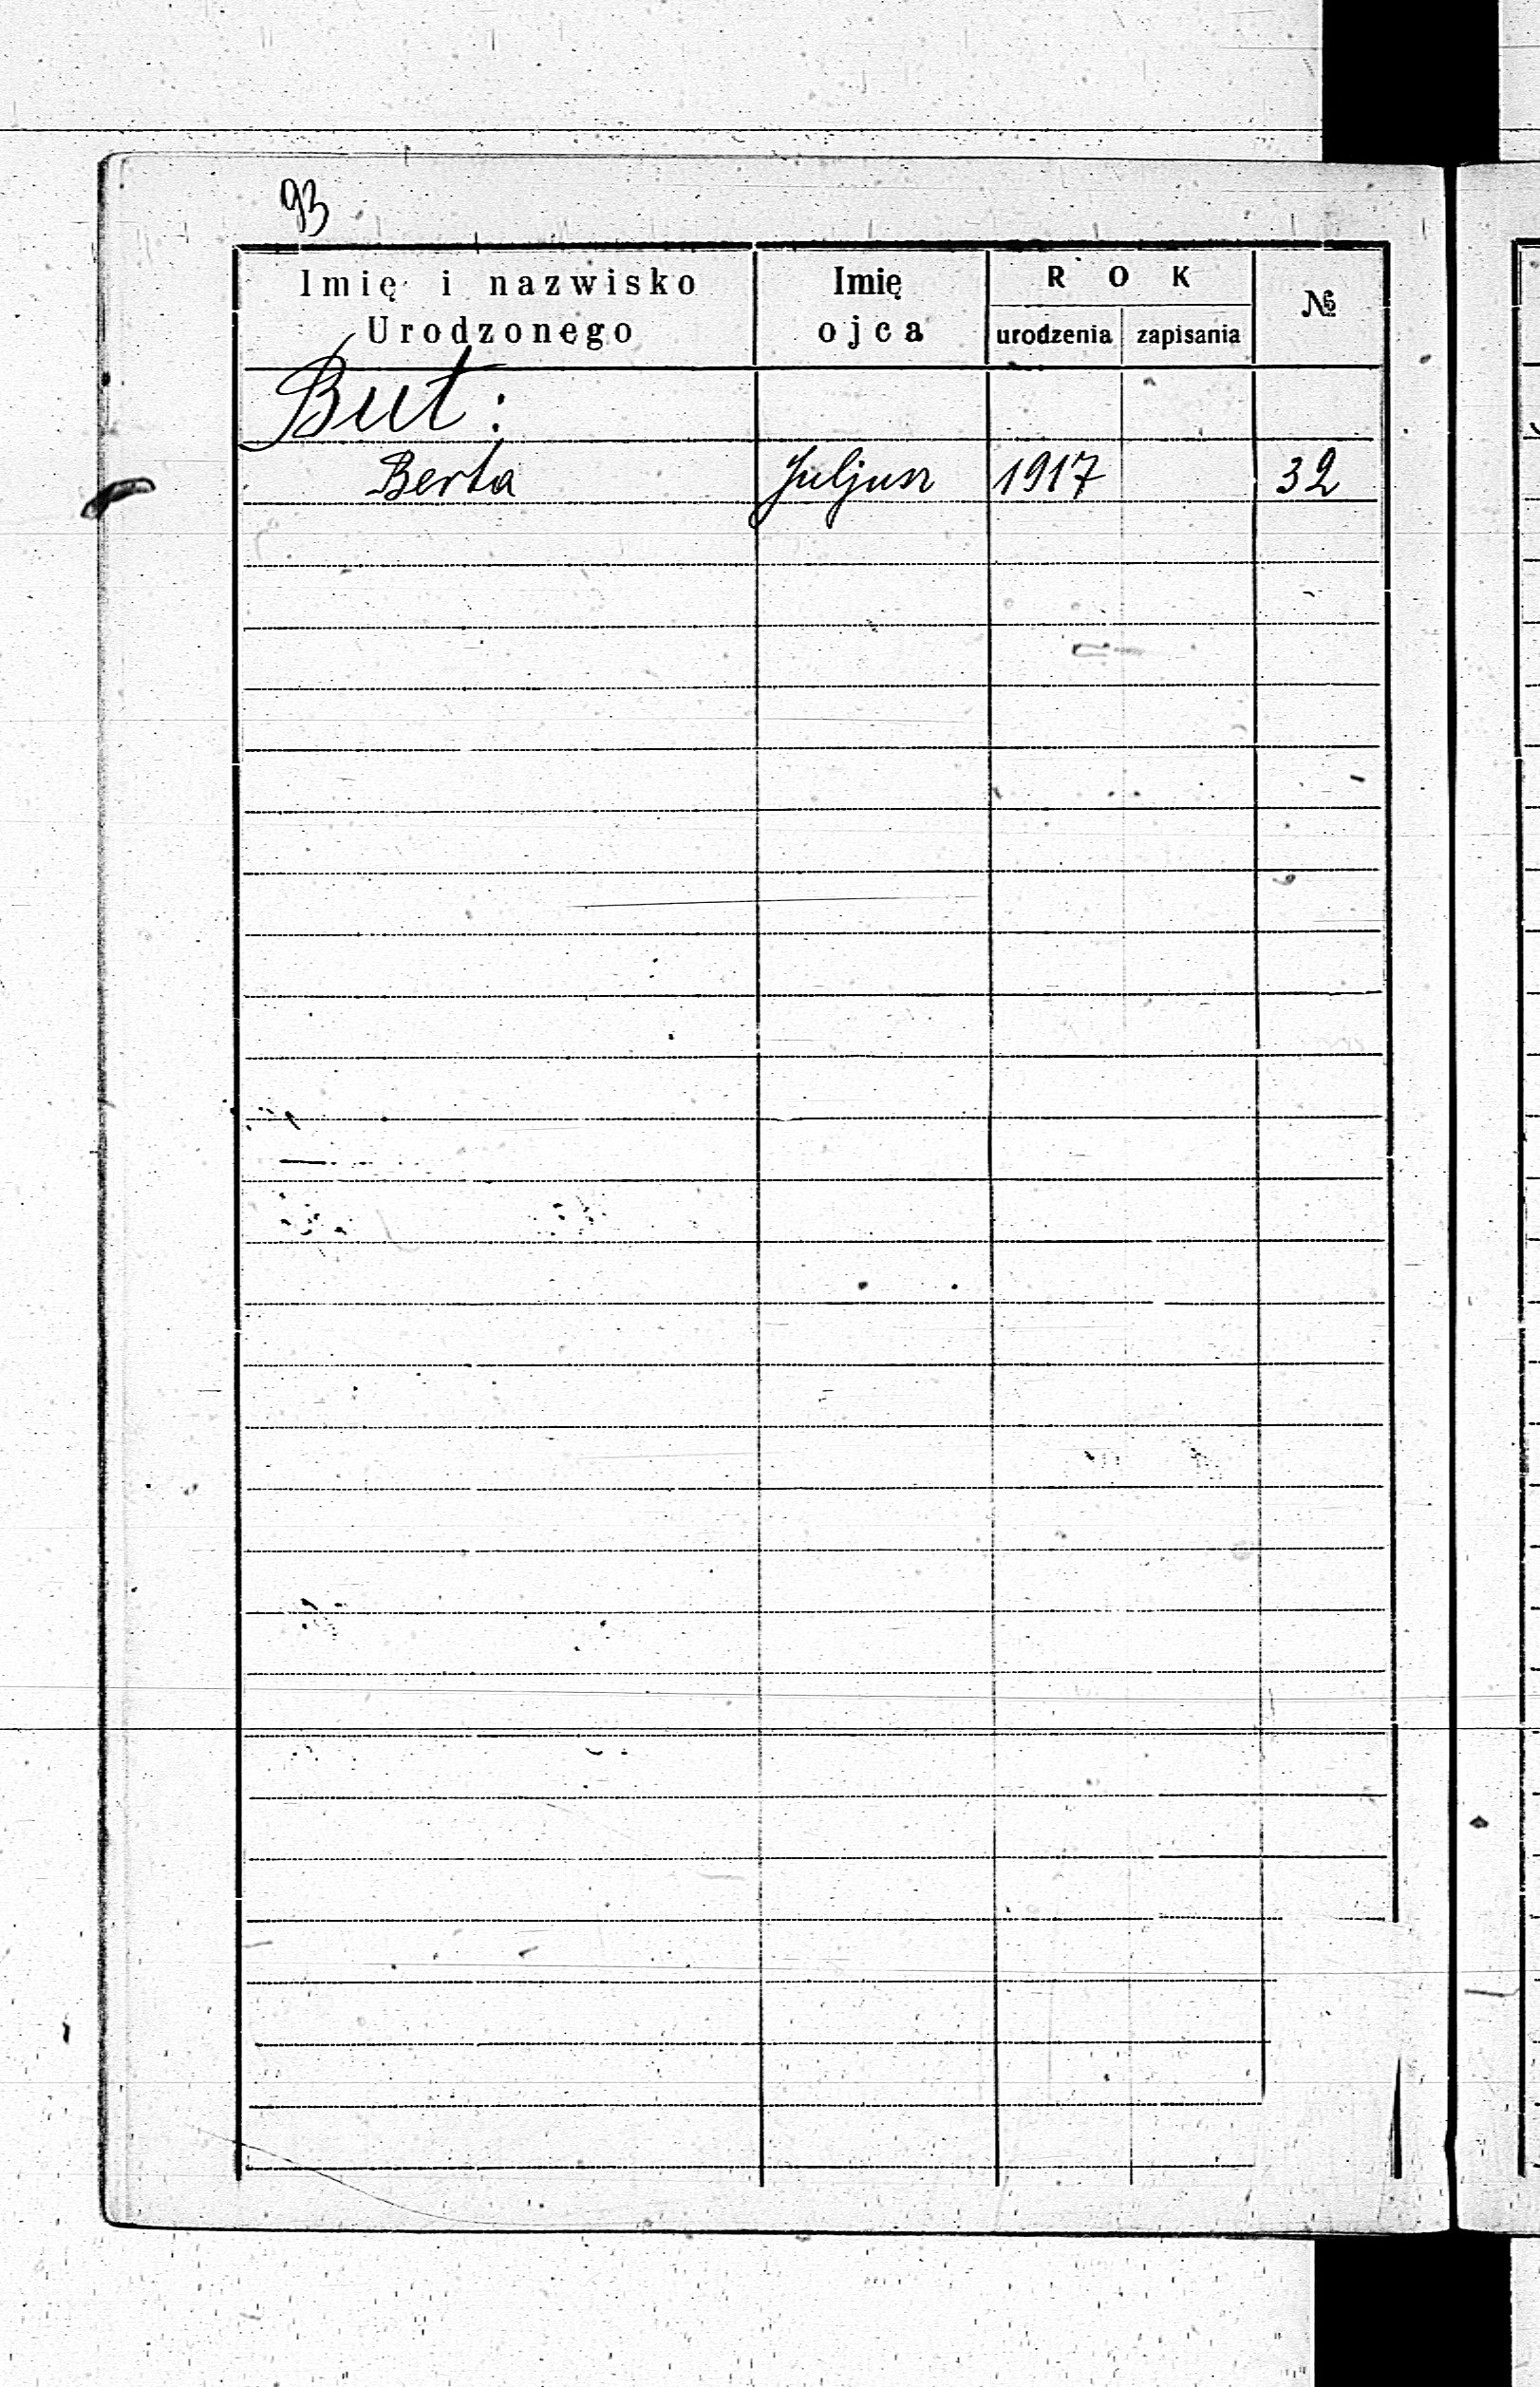 93
Imię i nazwisko Urodzonego | Imię ojca | ROK urodzenia | ROK zapisania | №
But:
Berta | Juljusz | 1917 | | 32